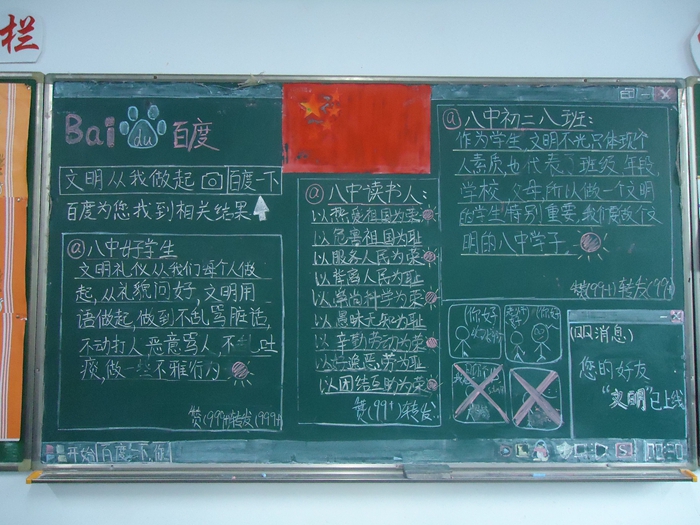 栏
Bai du 百度
文明从我做起 百度一下
百度为您找到相关结果
@八中好学生
文明礼仪从我们每个人做
起,从礼貌问好,文明用
语做起,做到不乱骂脏话,
不动打人恶意骂人,不乱吐
痰,做一些不雅行为
赞(999+)转发(999+)
@八中读书人:
以热爱祖国为荣
以危害祖国为耻
以服务人民为荣
以背离人民为耻
以崇尚科学为荣
以愚昧无知为耻
以辛勤劳动为荣
以好逸恶劳为耻
以团结互助为荣
赞(99+)转发
@八中初二八班:
作为学生,文明不光只体现个
人素质也代表了班级年段,
学校,父母,所以做一个文明
的学生特别重要,我们要做个文
明的八中学子.
赞(99+)转发(99+)
你好
你好
(QQ消息)
您的好友
"文明"已上线
开始 百度一下,你